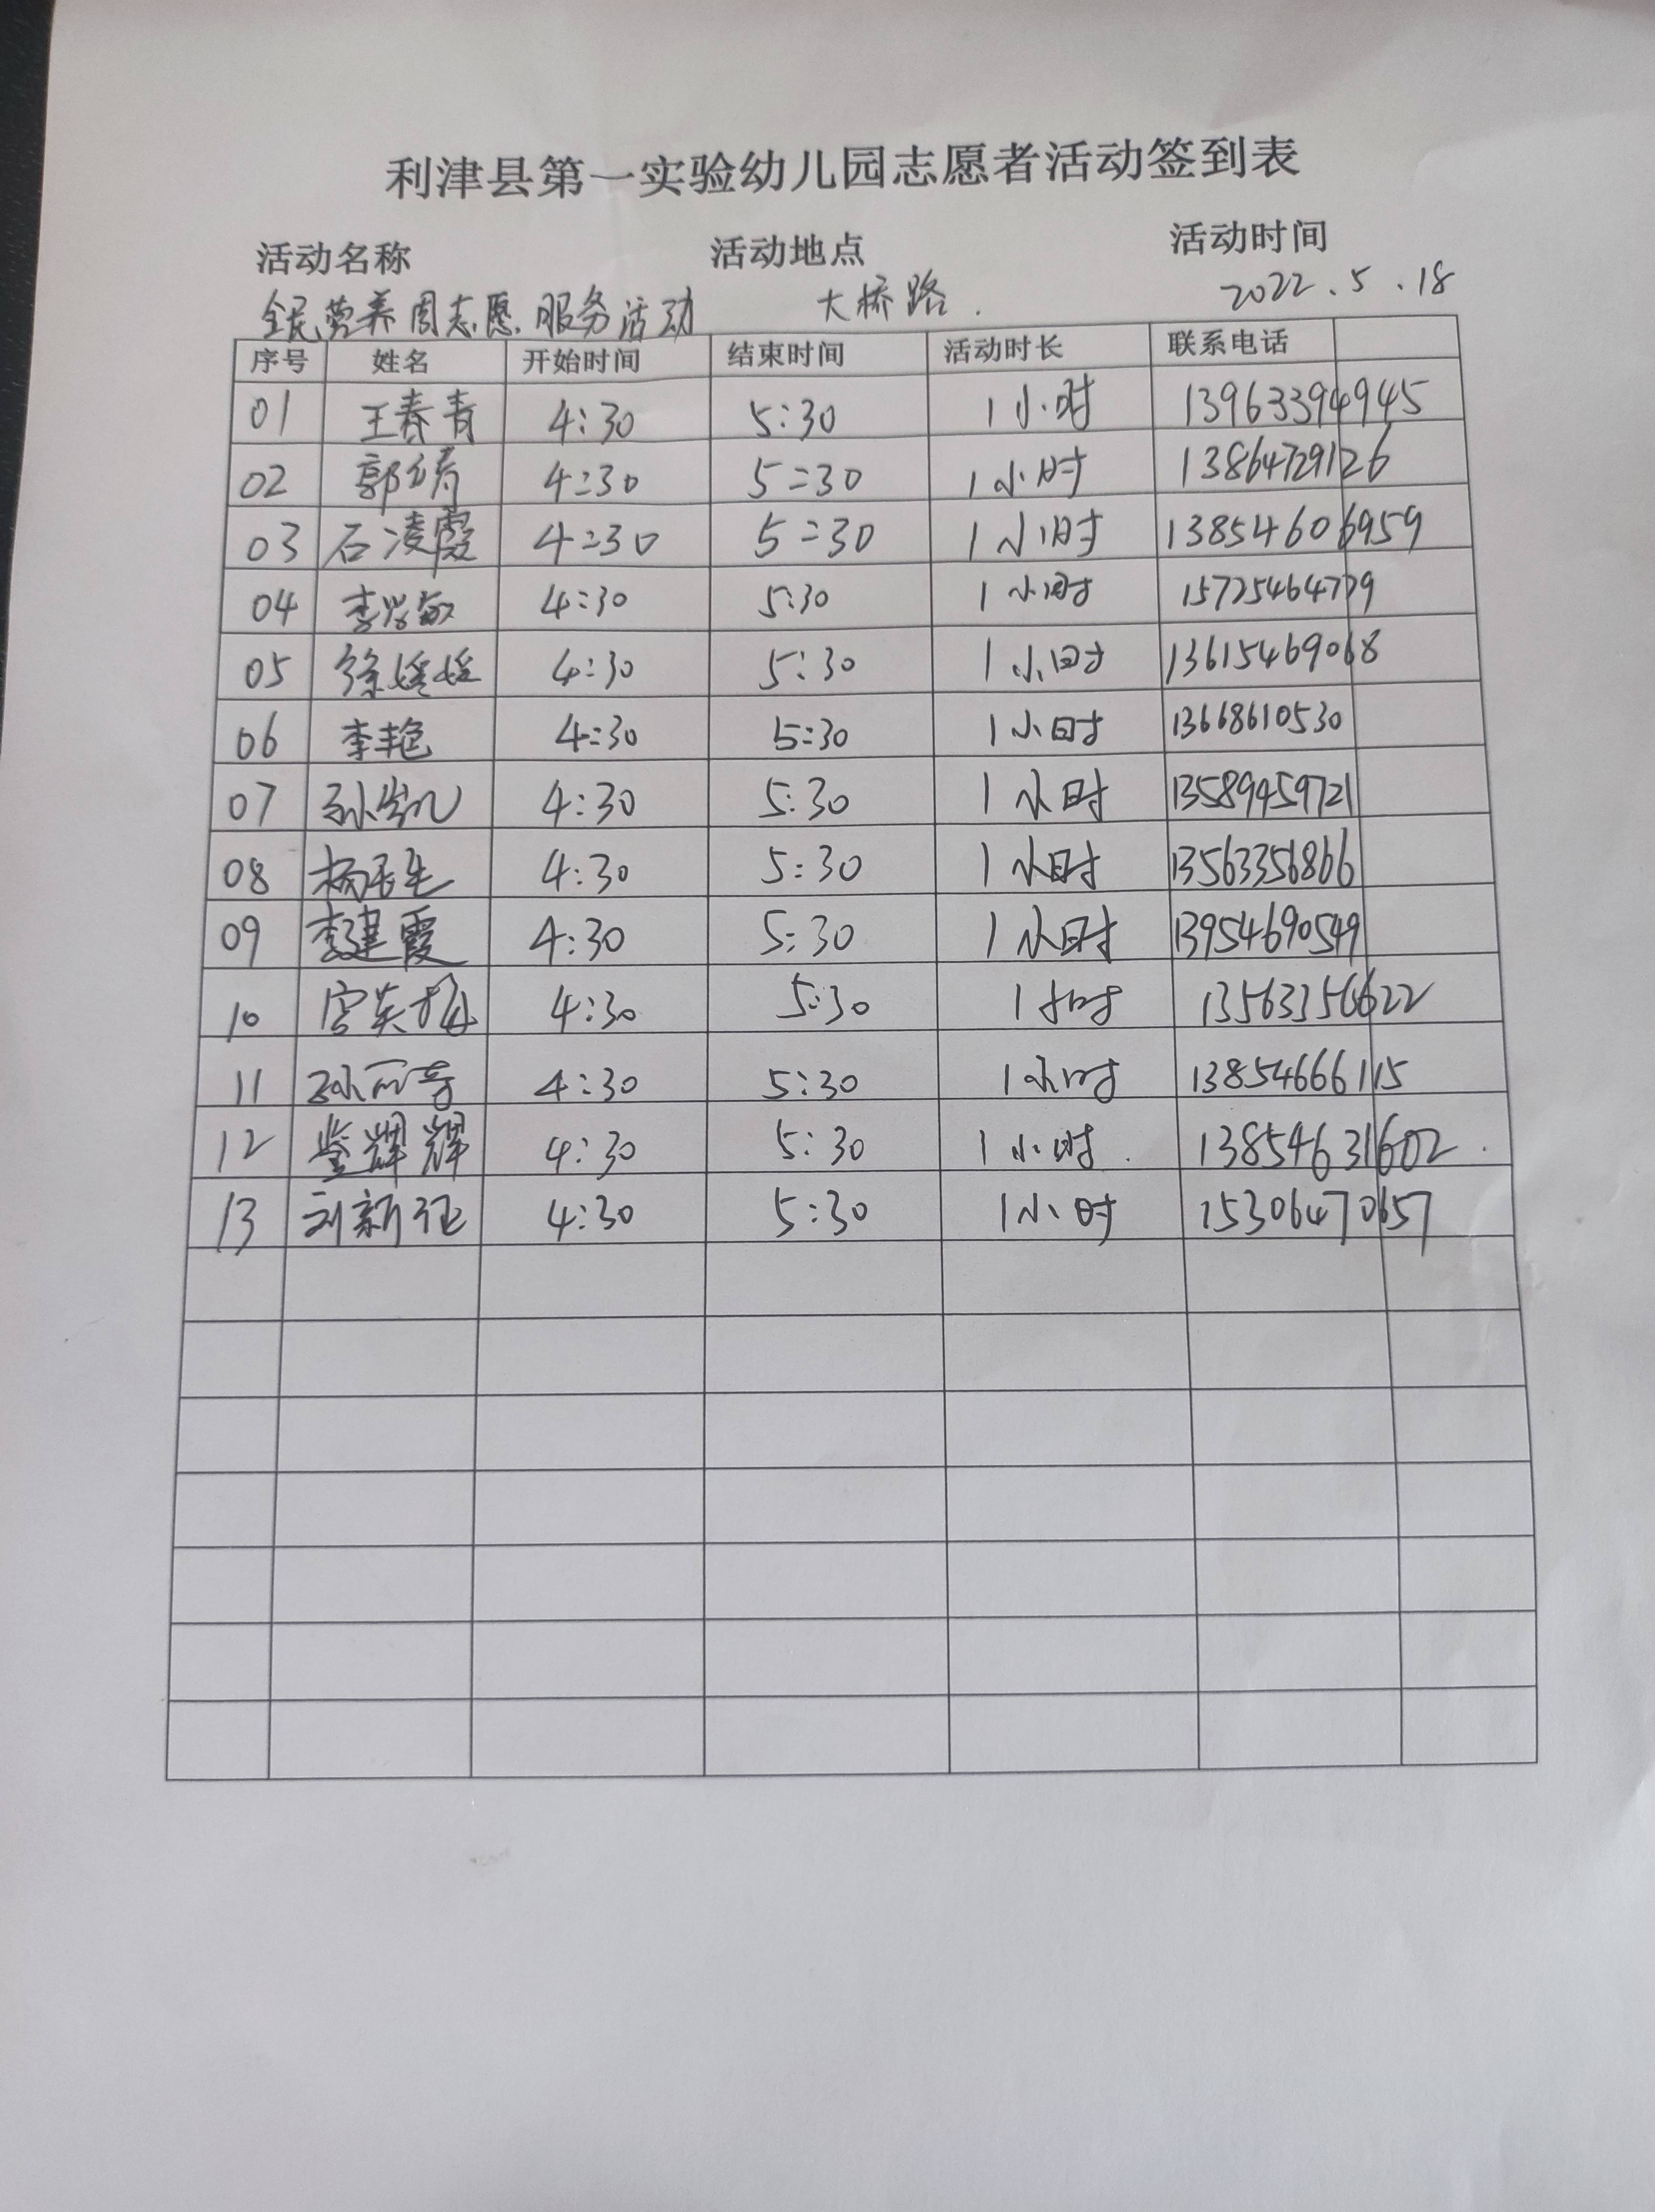 利津县第一实验幼儿园志愿者活动签到表
活动名称 活动地点 活动时间
全民营养周志愿服务活动 大桥路. 2022.5.18
序号 姓名 开始时间 结束时间 活动时长 联系电话
01 王春青 4:30 5:30 1小时 13963394945
02 郭倩 4:30 5:30 1小时 13864729126
03 石凌霞 4:30 5:30 1小时 13854606959
04 4:30 5:30 1小时 15725464779
05 徐媛媛 4:30 5:30 1小时 13615469068
06 李艳 4:30 5:30 1小时 13668610530
07 4:30 5:30 1小时 13589459721
08 4:30 5:30 1小时 13563356866
09 李建霞 4:30 5:30 1小时 13954690549
10 宫英梅 4:30 5:30 1小时 13563356622
11 4:30 5:30 1小时 13854666115
12 4:30 5:30 1小时. 13854631602.
13 刘新征 4:30 5:30 1小时 15306470657